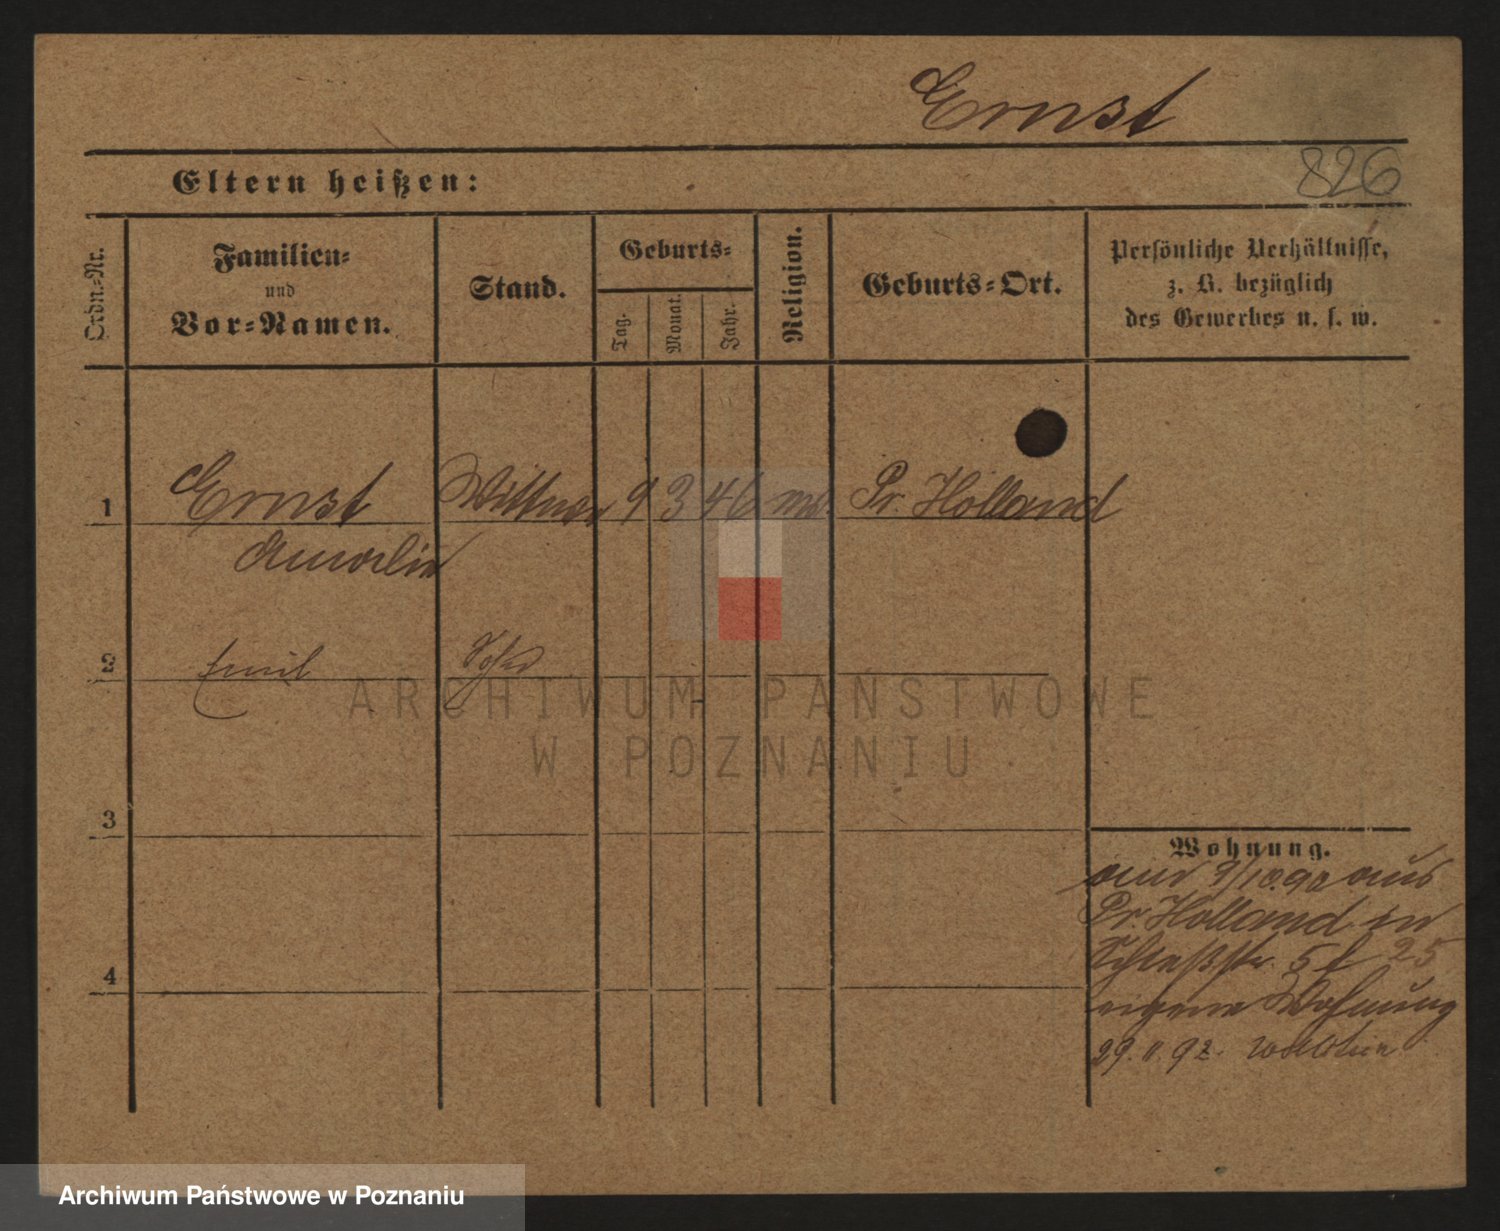 Ernst
826
Eltern heißen:
Ordn.-Nr.
Familien-
und
Vor-Namen.
Stand.
Geburts-
Tag.
Monat.
Jahr.
Religion.
Geburts-Ort.
Persönliche Verhältnisse,
z. B. bezüglich
des Gewerbes u. s. w.
1 Ernst Wittwe 9 3 46 Pr. Holland
Amalie
2 Emil Sohn
3
4
Wohnung.
am 9/10.92 aus
Pr. Holland in
5 25
eigene Wohnung
29. 11. 92.
ARCHIWUM PAŃSTWOWE
W POZNANIU
Archiwum Państwowe w Poznaniu